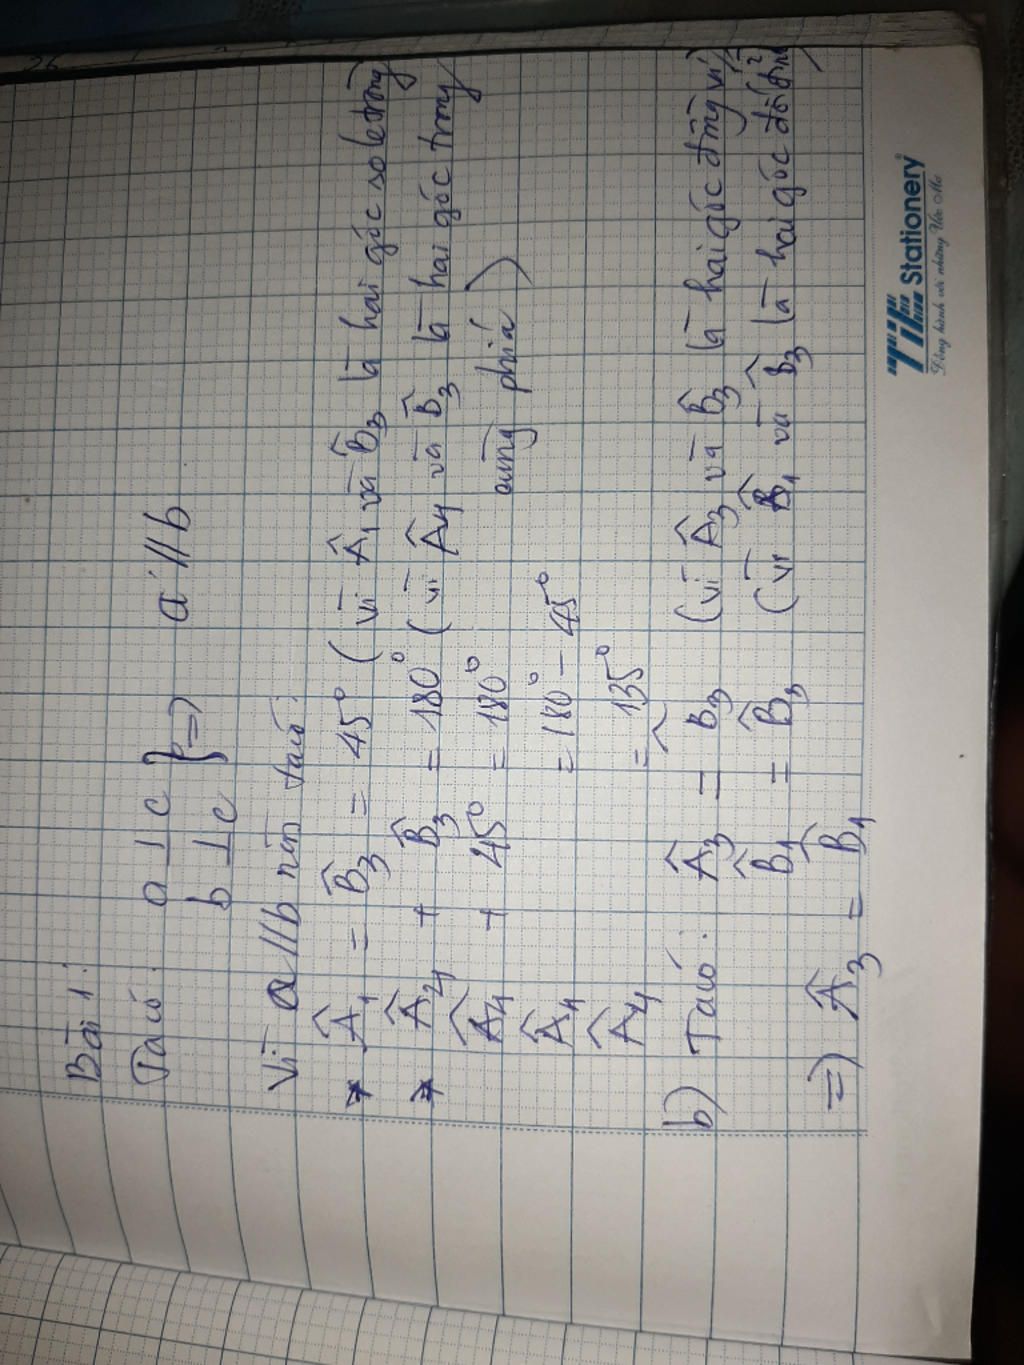 Bài 1:
Ta có: a ⊥ c } => a // b
b ⊥ c
Vì a // b nên ta có:
* Â1 = B̂3 = 45° (vì Â1 và B̂3 là hai góc so le trong)
* Â4 + B̂3 = 180° (vì Â4 và B̂3 là hai góc trong
cùng phía)
Â4 + 45° = 180°
Â4 = 180° - 45°
Â4 = 135°
b) Ta có: Â3 = B̂3 (vì Â3 và B̂3 là hai góc đồng vị)
B̂1 = B̂3 (vì B̂1 và B̂3 là hai góc đối đỉnh)
=> Â3 = B̂1
TIẾN Stationery
Đồng hành với những Ước Mơ